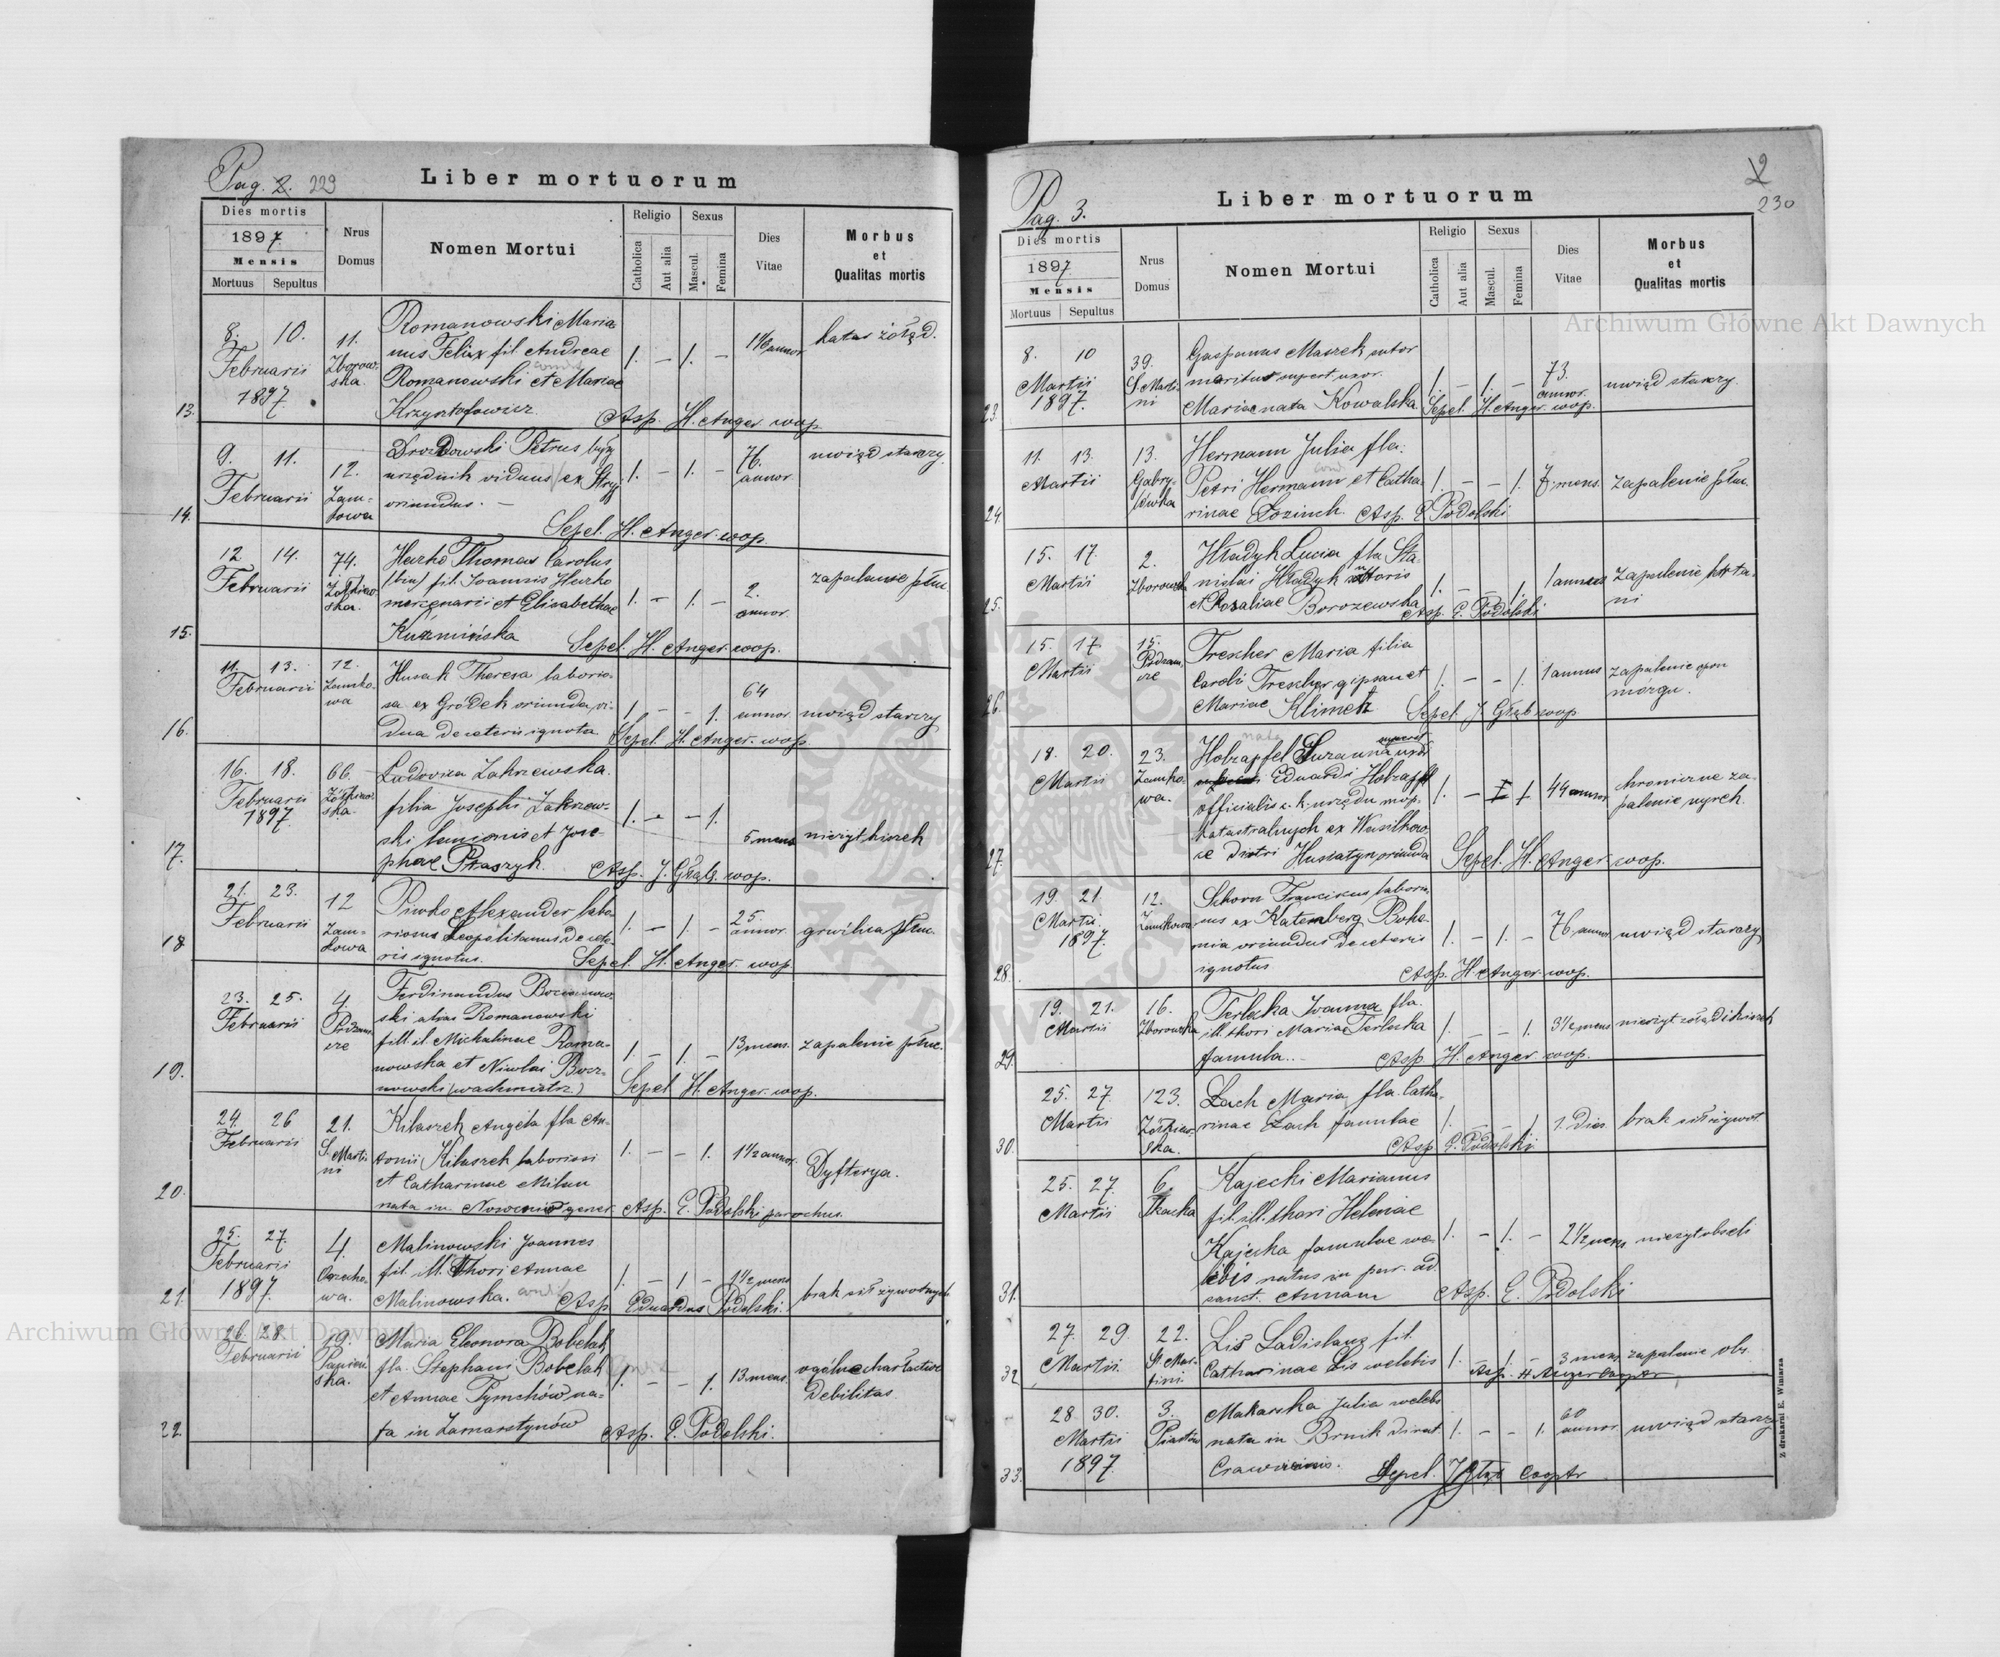 Pag. 2. 229
Liber mortuorum
Dies mortis
1897
Mensis
Mortuus Sepultus
Nrus Domus
Nomen Mortui
Religio
Catholica
Aut alia
Sexus
Mascul.
Femina
Dies Vitae
Morbus et Qualitas mortis
13. 8. 10. Februarii 1897 11. Zborowska.
Romanowski Maria-
nus Felix fil. Andreae
Romanowski et Mariae
Krzysztofowicz.
1. – 1. – annor katar żołąd.
Asp. H. Anger wop.
14. 9. 11. Februarii 12. Zamkowa
Drozdowski Petrus były
urzędnik viduus ex Stryj
oriundus. –
1. – 1. – 76. annor uwiąd starczy.
Sepel. H. Anger. wop.
15. 12. 14. Februarii 74. Żółkiewska.
Hurko Thomas Carolus
(bin) fil. Joannis Hurko
mercenarii et Elisabethae
Kuźmińska
1. – 1. – 2. annor. zapalenie płuc
Sepel. H. Anger. wop.
16. 11. 13. Februarii 12. Zamkowa
Husak Theresa laborio-
sa ex Gródek oriunda, vi-
dua de ceteris ignota
1 – – 1. 64 annor. uwiąd starczy
Sepel. H. Anger. wop.
17. 16. 18. Februarii 1897. 66. Żółkiewska.
Ludovica Zakrzewska.
filia Josephi Zakrzew-
ski lanionis et Jose-
phae Ptaszyk.
1. – – 1. 5 mens nieżyt kiszek
Asp. J. Głąb. wop.
18 21. 23. Februarii 12 Zamkowa
Piwko Alexander labo-
riosus Leopolitanus de cete-
ris ignotus.
1. – 1. – 25. annor. gruźlica płuc.
Sepel. H. Anger. wop
19. 23. 25. Februarii 4. Podzamcze
Ferdinandus
ski alias Romanowski
fil. ill. Michalinae Roma-
nowska et Nicolai
nowski (wachmistrz.)
1. – 1. – 13 mens. zapalenie płuc.
Sepel H. Anger. wop.
20. 24. 26 Februarii 21. S. Martini
Kilaszek Angela fla An-
tonii Kilaszek laboriosi
et Catharinae Milan
nata in
1. – – 1. 1 1/2 annor. Dyfterya.
Asp. E. Podolski parochus.
21. 25. 27. Februarii 1897. 4. Orzechowa.
Malinowski Joannes
fil. ill. thori Annae
Malinowska.
1. – 1 – 1 1/2 mens brak sił żywotnych
Asp Eduardus Podolski.
22. 26. 28 Februarii 19.
Maria Eleonora Bobelak
fla. Stephani Bobelak
et Annae Tymchów na-
ta in Zamarstynów
1. – – 1. 13 mens. ogólne charłactwo
Debilitas.
Asp. E. Podolski.
Pag. 3.
Liber mortuorum
2
230
Dies mortis
1897
Mensis
Mortuus Sepultus
Nrus Domus
Nomen Mortui
Religio
Catholica
Aut alia
Sexus
Mascul.
Femina
Dies Vitae
Morbus et Qualitas mortis
23. 8. 10 Martii 1897. 39. S. Martini
Gasparus Maszek sutor
maritus superst. uxor.
Mariae nata Kowalska
1. – 1. – 73. annor. uwiąd starczy.
Sepel. H. Anger. wop.
24. 11. 13. Martii 13. Gabryelówka
Hermann Julia fla.
Petri Hermann et Catha-
rinae Łozinch.
1. – – 1. 7. mens. zapalenie płuc.
Asp. E. Podolski
25. 15. 17. Martii 2. Zborowska
Hładyk Lucia fla Sta-
nislai Hładyk sutoris
et Rosaliae Borozewska
1. – – 1. 1 annus zapalenie
Asp. E. Podolski
26. 15. 17 Martii 15. Podzamcze
Trescher Maria filia
Caroli Trescher et
Mariae Klimek
1. – – 1. 1 annus zapalenie opon
mózgu.
Sepel. J. Głąb wop
27. 18. 20. Martii 23. Zamkowa.
Holzapfel Suzanna uxor
Eduardi Holzapfel
officialis c. k. urzędu map.
katastralnych ex Wasilkow-
ce distri Husiatyn oriunda
1. – 1 44 annor chroniczne za-
palenie nerek.
Sepel. H. Anger. wop.
28. 19. 21 Martii 1897. 12. Zamkowa
Schorn Franciscus laborio-
sus ex Katenberg Bohe-
mia oriundus de ceteris
ignotus
1. – 1. – 76 annor uwiąd starczy
Asp. H. Anger. wop.
29. 19. 21. Martii 16. Zborowska
Terlecka Joanna fla.
ill. thori Mariae Terlecka
famula...
1. – – 1. 3 1/2 mens nieżyt żołąd i kiszek
Asp. H. Anger wop.
30. 25. 27. Martii 123. Żółkiewska.
Łach Maria fla Catha-
rinae Łach famulae
1. – – 1 1. dies brak sił żywot.
Asp E. Podolski
31. 25. 27. Martii 6. Tkacka
Kajecki Marianus
fil. ill. thori Heleniae
Kajecka famulae coe-
libis natus in par. ad
sanct. Annam
1. – 1. – 2 1/2 mens nieżyt obseli
Asp. E. Podolski
32 27. 29. Martii. 22. St. Martini
Lis Ladislaus fil.
Catharinae Lis
1. – 1. – 3 mens zapalenie
Asp. H Anger Cooptr
33. 28. 30. Martii 1897. 3. Piastów
Makarska Julia
nata in Bruck
1. – – 1. 60 annor uwiąd starczy
Sepel. J Głąb Cooptr
Z drukarni E. Winiarza
Archiwum Główne Akt Dawnych
Archiwum Główne Akt Dawnych